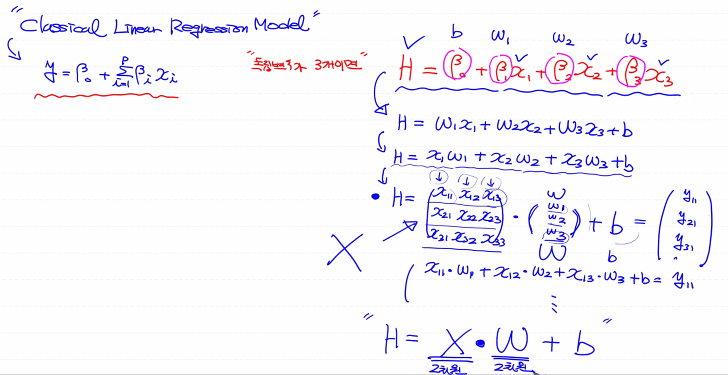 "Classical Linear Regression Model"
y = β₀ + Σᵢ₌₁ᵖ βᵢxᵢ
"독립변수가 3개이면"
b w₁ w₂ w₃
H = β₀ + β₁x₁ + β₂x₂ + β₃x₃
H = w₁x₁ + w₂x₂ + w₃x₃ + b
H = x₁w₁ + x₂w₂ + x₃w₃ + b
w
x₁₁ x₁₂ x₁₃ w₁ y₁₁
H = (x₂₁ x₂₂ x₂₃) · (w₂) + b = (y₂₁)
x₂₁ x₃₂ x₃₃ w₃ y₃₁
X W b
(x₁₁·w₁ + x₁₂·w₂ + x₁₃·w₃ + b = y₁₁
⋮
"H = X · W + b"
2차원 2차원